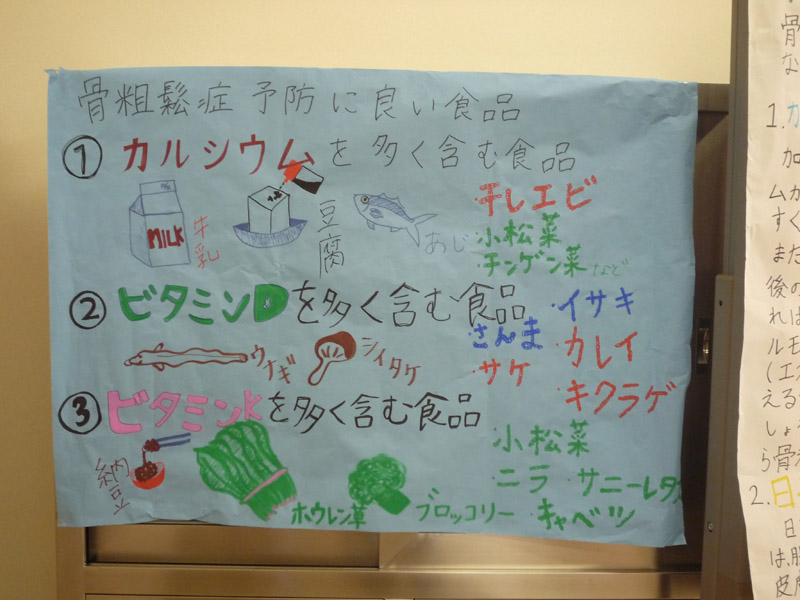 骨粗鬆症予防に良い食品
① カルシウムを多く含む食品
MILK
牛乳
豆腐
あじ
・干しエビ
・小松菜
・チンゲン菜 など
② ビタミンDを多く含む食品
ウナギ
シイタケ
・さんま
・サケ
・イサキ
・カレイ
・キクラゲ
③ ビタミンKを多く含む食品
納豆
ホウレン草
ブロッコリー
・小松菜
・ニラ ・サニーレタス
・キャベツ
骨
な
1.カ
加
ムか
すく
また
後の
れは
ルモ
(エス
える
しょ
ら骨
2.日
日
は、
皮膚